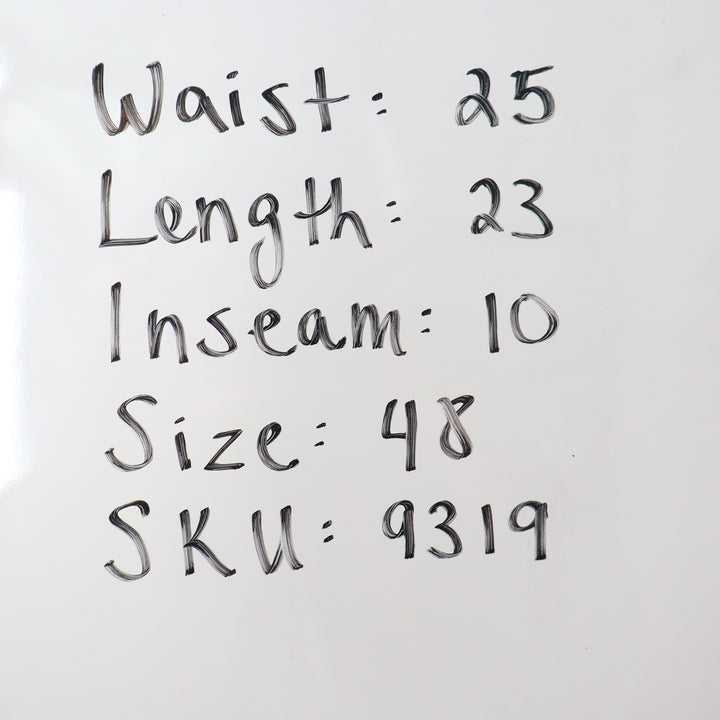 Waist: 25
Length: 23
Inseam: 10
Size: 48
SKU: 9319